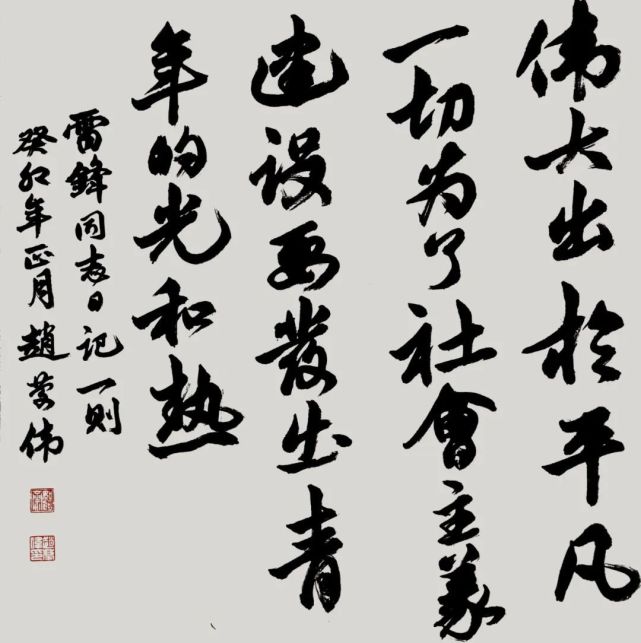 伟大出於平凡
一切为了社會主義
建设要發出青
年的光和熱
雷鋒同志日记一则
癸卯年正月趙荣伟